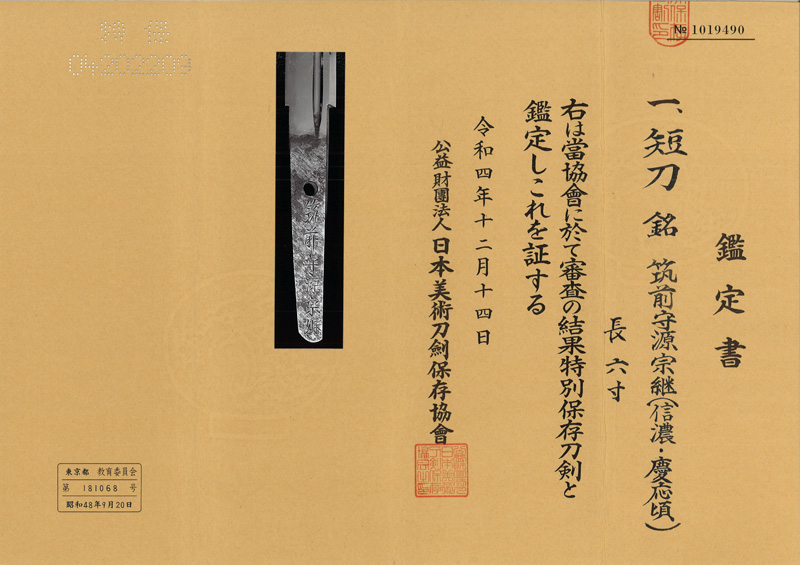 № 1019490
鑑定書
一、短刀 銘 筑前守源宗継(信濃・慶応頃)
長 六寸
右は當協會に於て審査の結果特別保存刀剣と
鑑定しこれを証する
令和四年十二月十四日
公益財團法人 日本美術刀劍保存協會
筑前守源宗継
04202209
東京都 教育委員会
第 181068 号
昭和48年9月20日